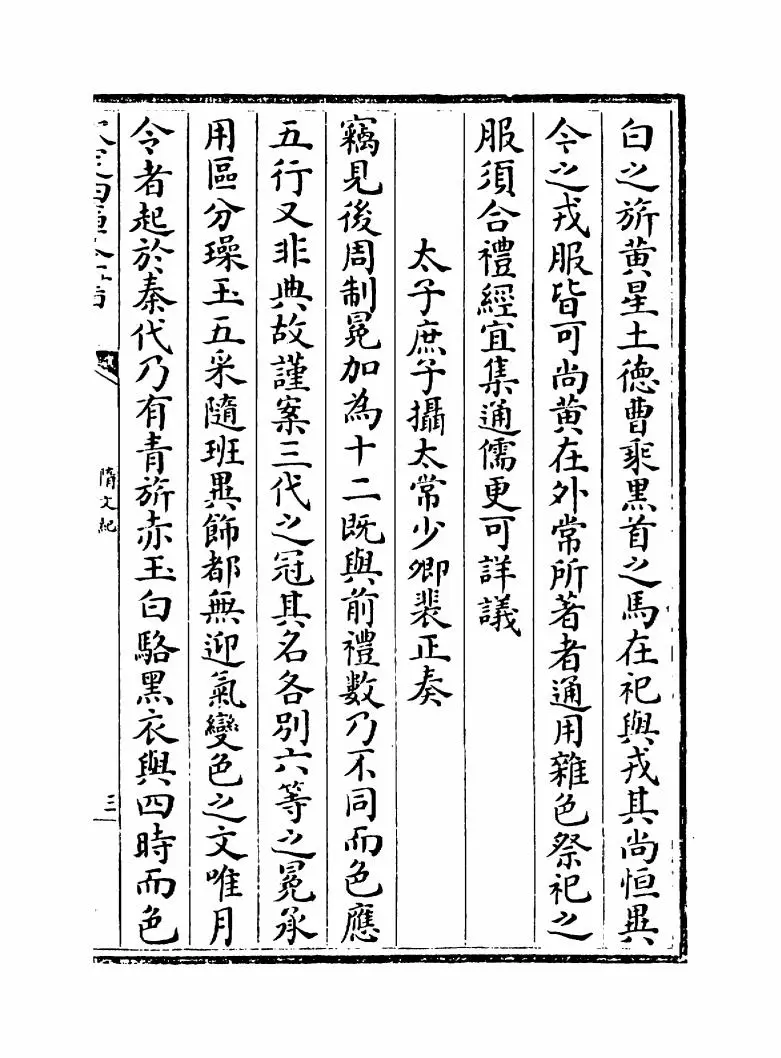 白之旂黄星土德曹乘黒首之馬在祀與戎其尚恒異
今之戎服皆可尚黄在外常所著者通用雜色祭祀之
服須合禮經宜集通儒更可詳議
太子庶子攝太常少卿裴正奏
竊見後周制冕加為十二既與前禮數乃不同而色應
五行又非典故謹案三代之冠其名各别六等之冕承
用區分璪玉五采隨班異飾都無迎氣變色之文唯月
令者起於秦代乃有青旂赤玉白駱黒衣與四時而色
隋文紀
三